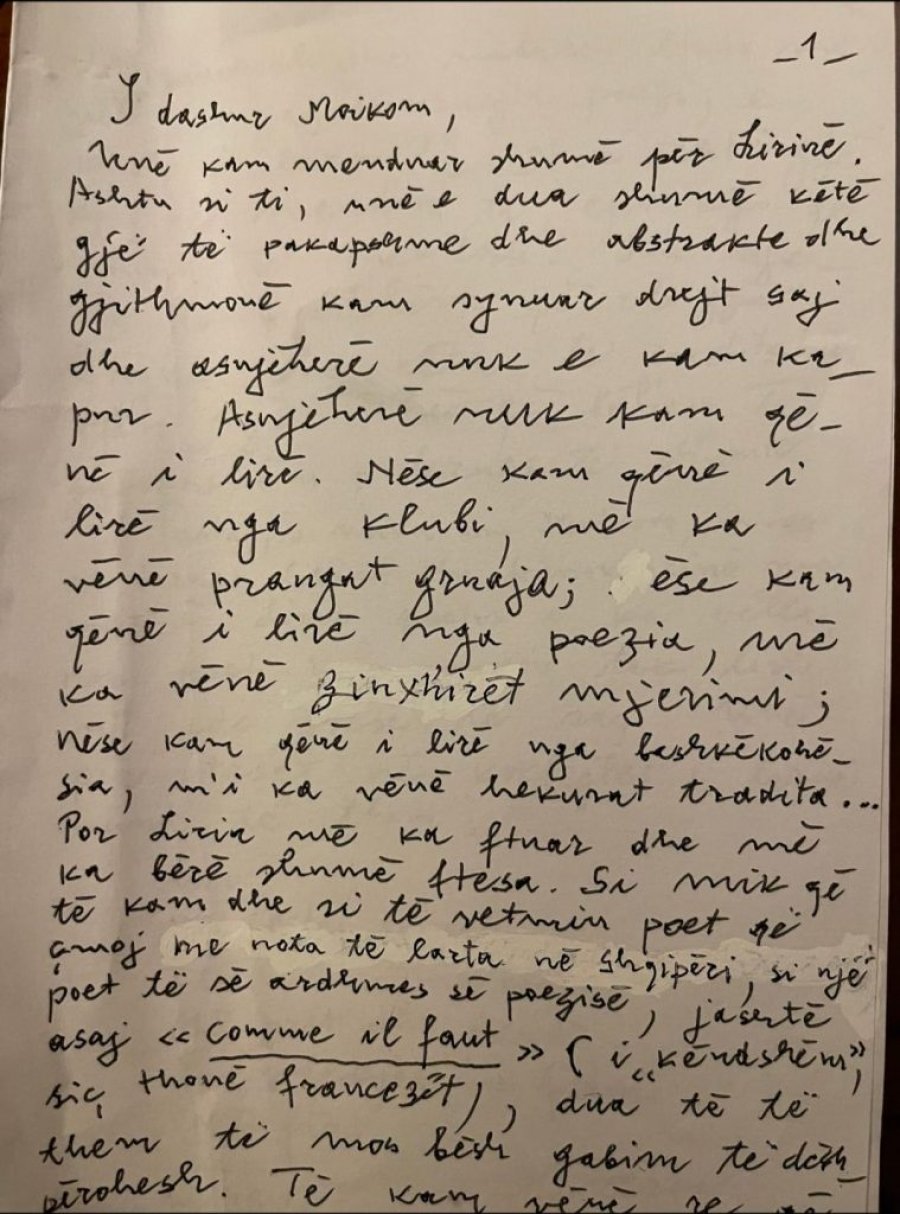 _1_
I dashur Moikom,
Unë kam menduar shumë për Lirinë.
Ashtu si ti, unë e dua shumë këtë
gjë të pakapshme dhe abstrakte dhe
gjithmonë kam synuar drejt saj
dhe asnjëherë nuk e kam ka_
pur. Asnjëherë nuk kam që_
në i lirë. Nëse kam qënë i
lirë nga klubi, më ka
vënë prangat gruaja; ëse kam
qënë i lirë nga poezia, më
ka vënë zinxhirët mjerimi;
nëse kam qënë i lirë nga bashkëkohë_
sia, m'i ka vënë hekurat tradita...
Por Liria më ka ftuar dhe më
ka bërë shumë ftesa. Si mik që
të kam dhe si të vetmin poet që
çmoj me nota të larta në Shqipëri, si një
poet të së ardhmes së poezisë, jashtë
asaj « comme il faut » (i „këndshëm”,
siç thonë francezët), dua të të
them të mos bësh gabim të dësh_
përohesh. Të kam vënë re që